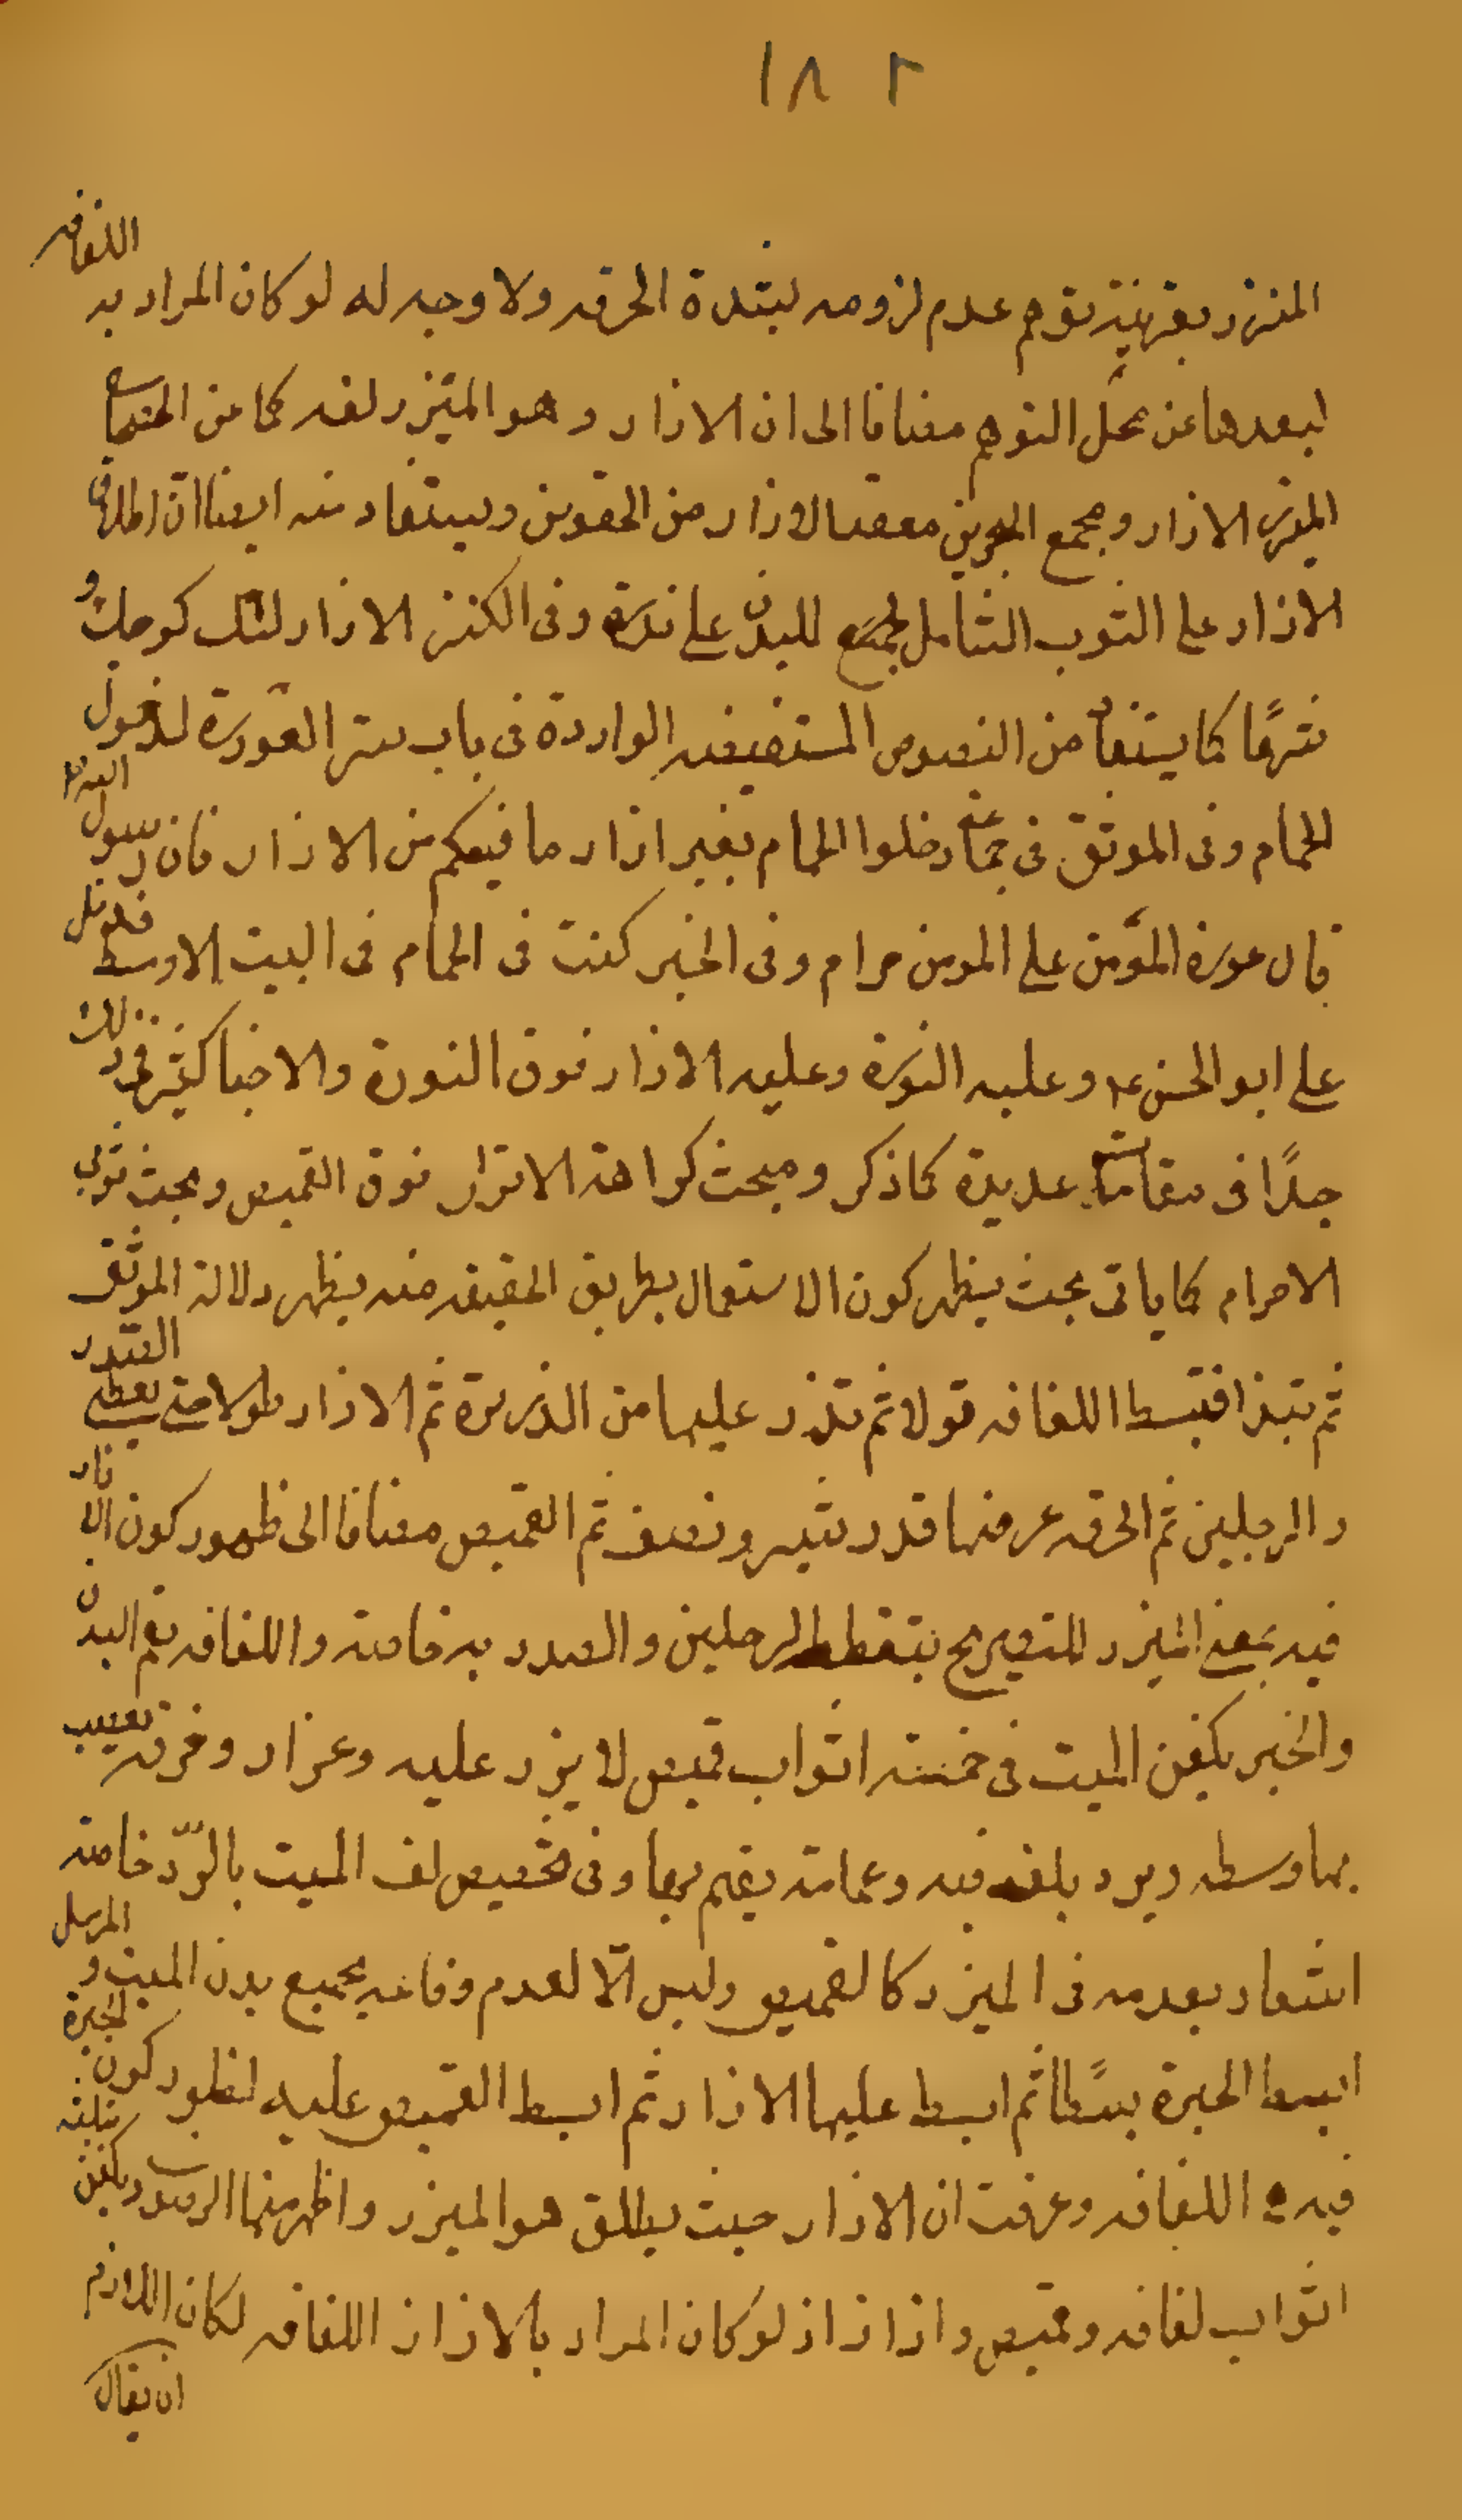 ١٨٢
المئزر بقرينة توهم عدم لزومه لشدة الخرقه ولا وجه له لو كان المراد به اللفافه
لبعدها عن محل التوهم مضافا الى ان الازار وهو الميزر لغه كما عن
الميزر الازار ومجمع البحرين معقد الازار من الحقوين ويستفاد منه ايضا ان اطلاق
الازار على الثوب الشامل لجميع البدن على ندرة وفى الكنز الازار لنك كوچك و
شرعًا كما يستفاد من النصوص المستفيضه الواردة فى باب ستر العورة لدخول
الحمام وفى الموثق فى جماعة دخلوا الحمام بغير ازار ما فيعكم من الازار فان رسول الله ص
قال عورة المؤمن على المومن حرام وفى الخبر كنت فى الحمام فى البيت الاوسط فدخل
على ابو الحسن ع وعليه النورة وعليه الازار فوق النورة والاخبار كثيرة فى ذلك
جدًا فى مقامات عديدة كما ذكر ومبحث كراهة الاتزار فوق القميص وبحث ثوبى
الاحرام كما ياتى بحث يظهر كون الاستعمال بطريق الحقيقه منه يظهر دلالة الموثق
ثم تبدا فتبسط اللفافه طولا ثم تذر عليها من الذريرة ثم الازار طولا حتى يغطى الصدر
والرجلين ثم الخرقه عرضها قدر شبر ونصف ثم القميص مضافا الى ظهور كون الازار
فيه بمعنى الميزر للتصريح بتغطيه الرجلين والصدر به خاصه واللفافه تعم البدن
والخبر يكفن الميت فى خمسه اثواب قميص لا يزر عليه وازار وخرقه يعصب
بها وسطه وبرد يلف فيه وعمامة يعتم بها وفى تخصيص لف الميت بالبرد خاصه
اشعار بعدمه فى الميزر كالقميص وليس الّا لعدم وفائه بجميع بدن الميت و المرسل
ابسط الحبرة بسطًا ثم ابسط عليها الازار ثم ابسط القميص عليه لظهور كون الحبرة
فيه اللفافه وعرفت ان الازار حيث يطلق هو الميزر واظهر منها الرضوى ويكفن بثلثه
اثواب لفافه وقميص وازار اذ لو كان المراد بالازار اللفافه لكان اللازم
ان يقال